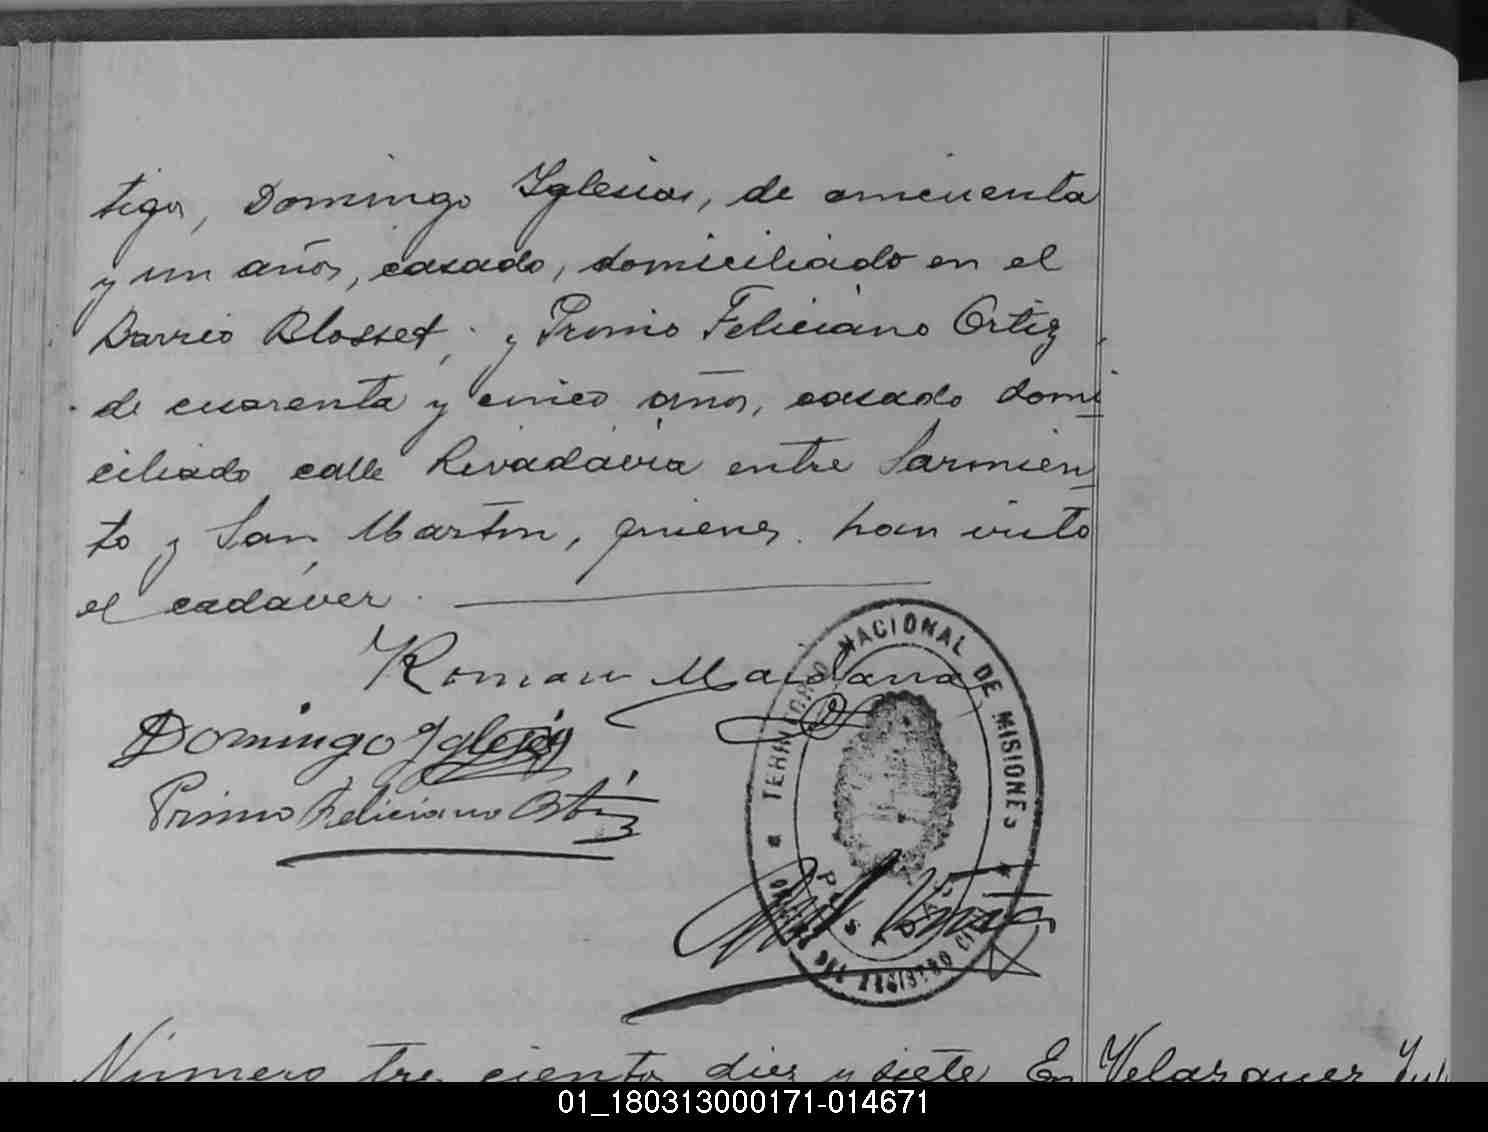 tigos, Domingo Iglesias, de cincuenta
y un años, casado, domiciliado en el
Barrio Blosset, y Primo Feliciano Ortiz
de cuarenta y cinco años, casado domi
ciliado calle Rivadavia entre Sarmien
to y San Martin, quienes han visto
el cadáver.
Roman Maidana
Domingo Iglesias
Primo Feliciano Ortiz
TERRITORIO NACIONAL DE MISIONES
POSADAS
OFICINA DEL REGISTRO CIVIL
Número trescientos diez y siete En
Velazquez
01_180313000171-014671